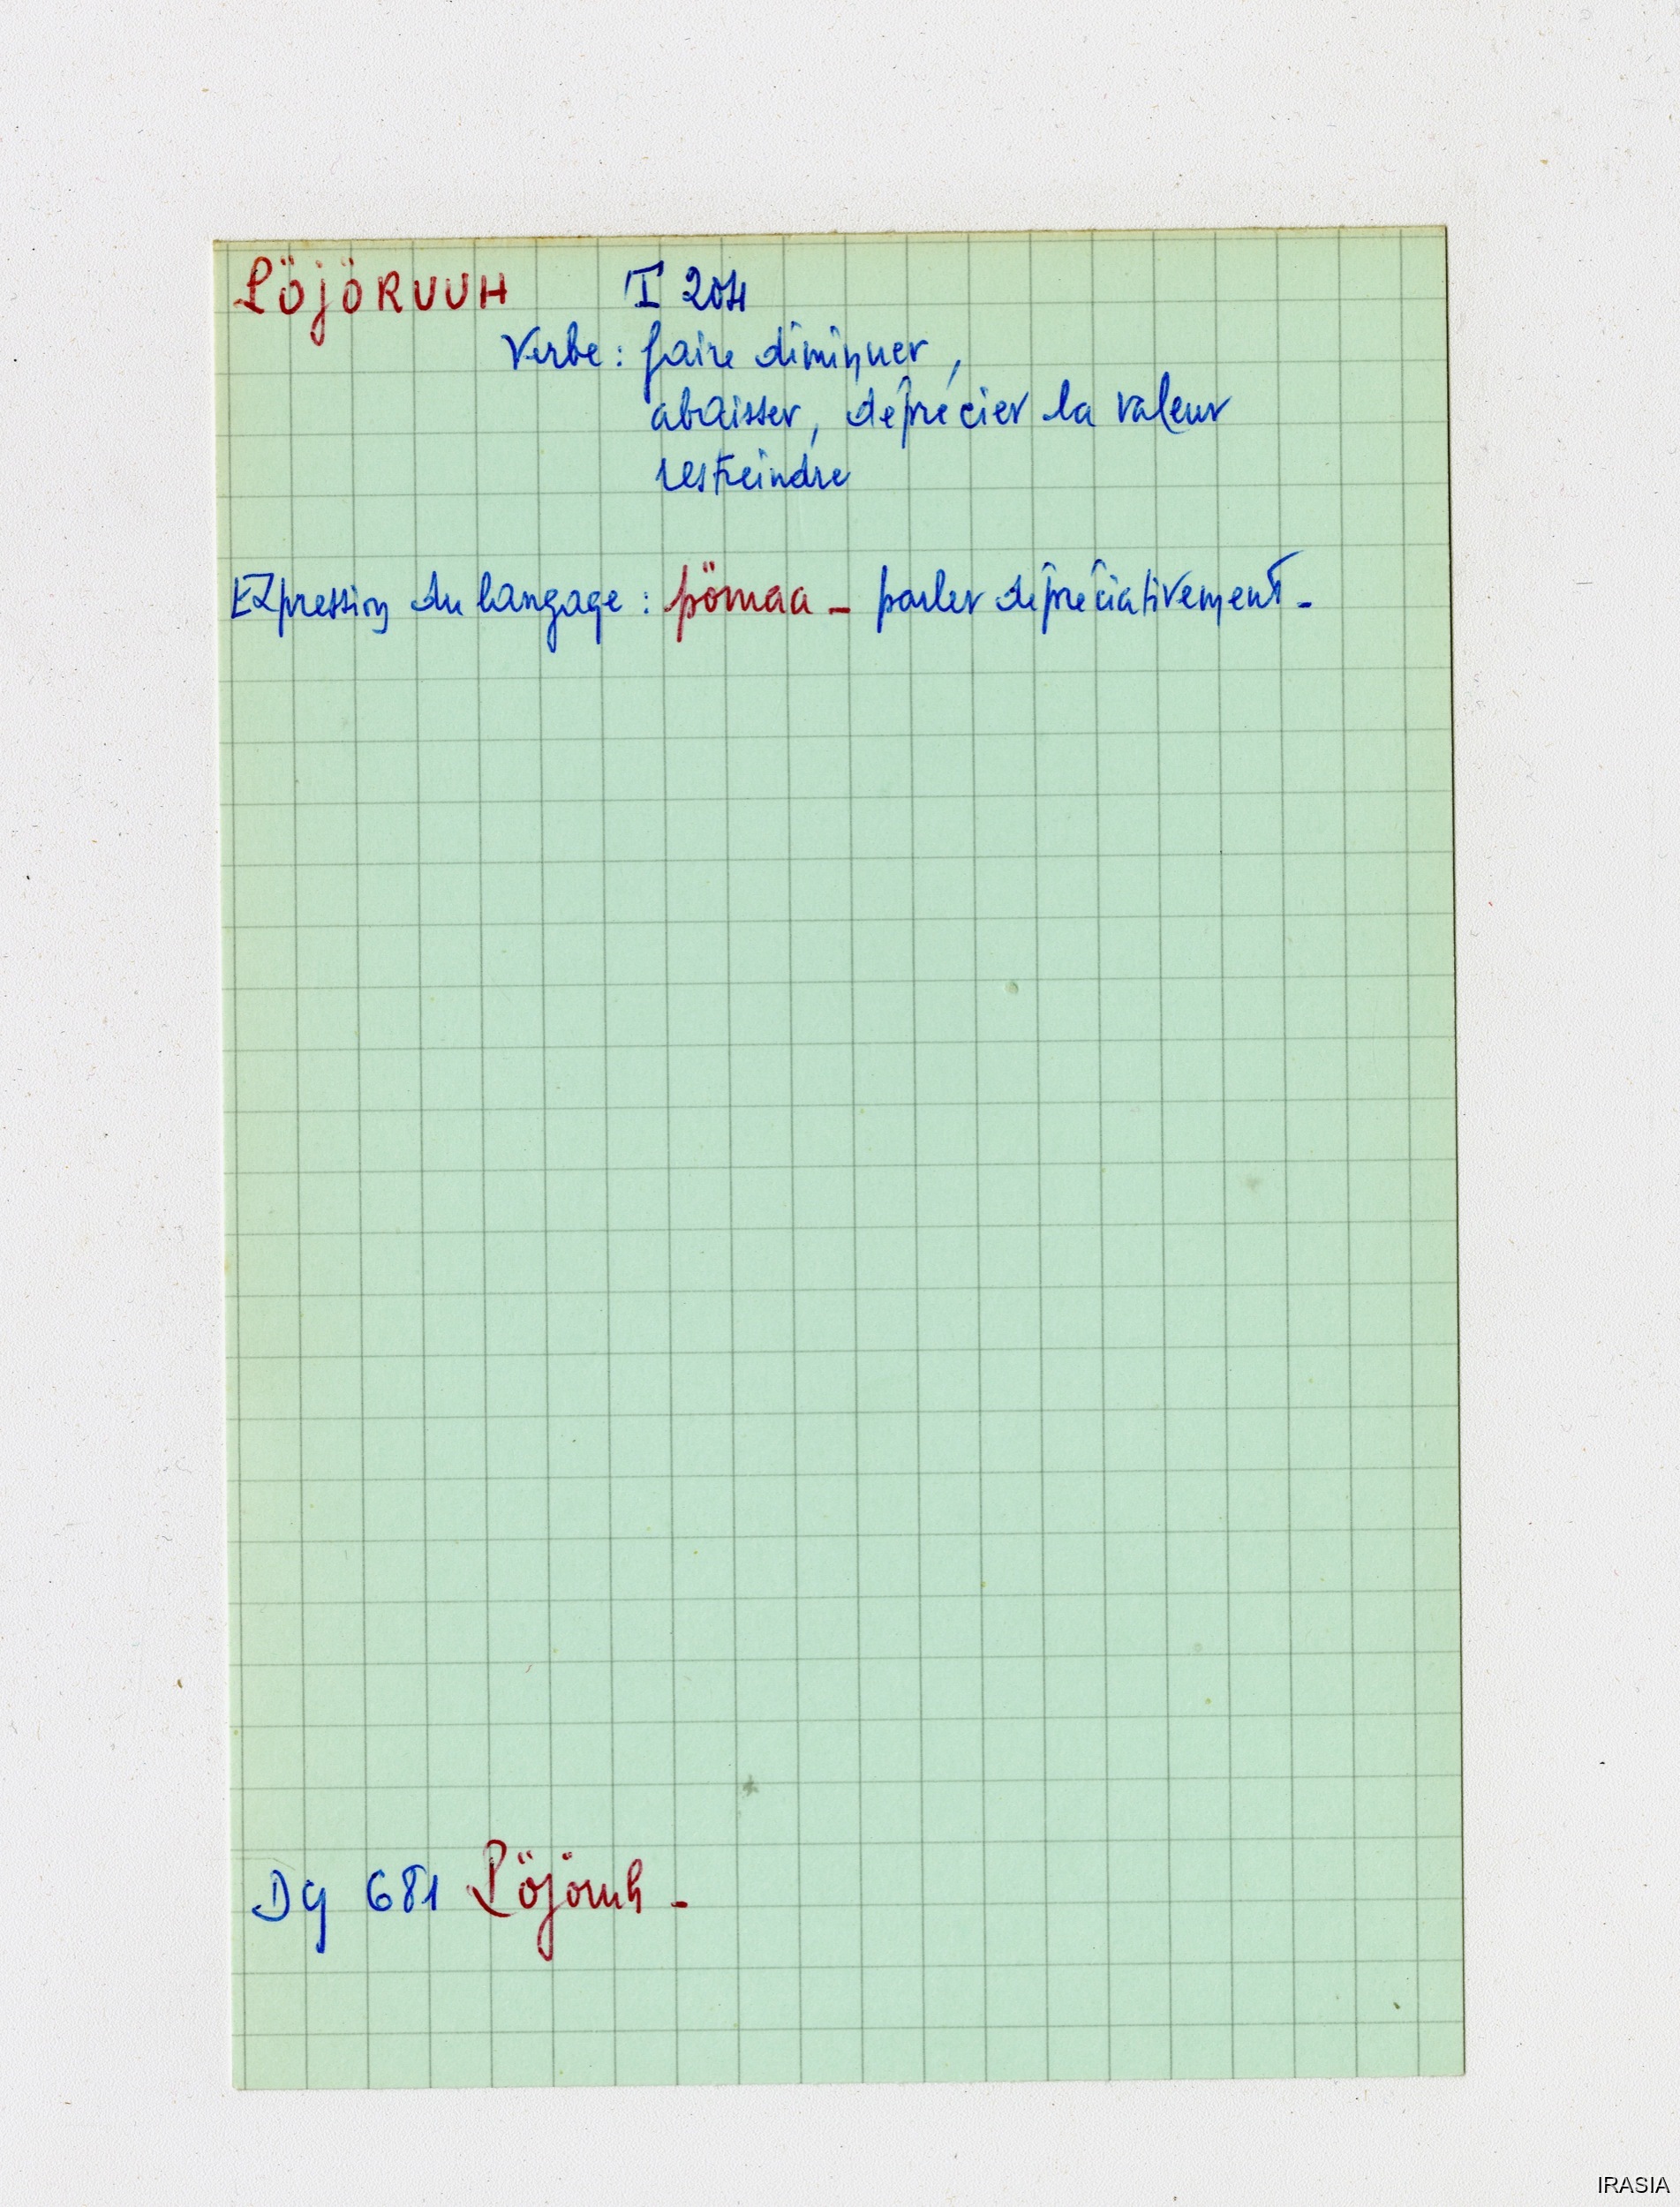 LöjöRUUH I 204
Verbe : faire diminuer,
abaisser, déprécier la valeur
restreindre
Expression du langage : pömaa - parler dépréciativement -
DG 681 Löjöruh -
IRASIA